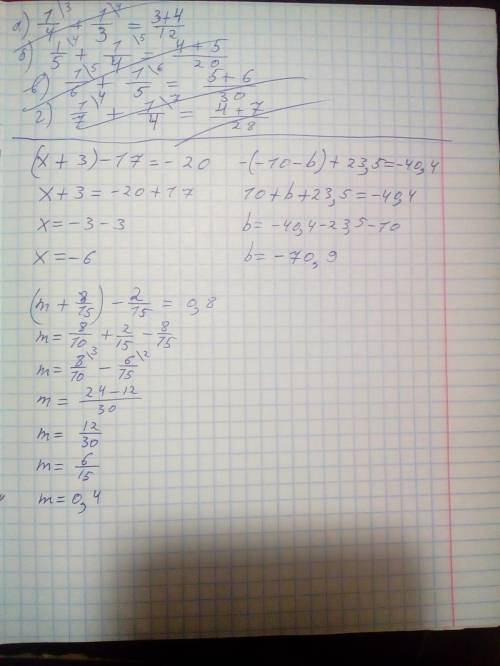 а) 1/4 \3 + 1/3 \4 = 3+4/12
б) 1/5 \4 + 1/4 \5 = 4+5/20
в) 1/6 \5 + 1/5 \6 = 5+6/30
г) 1/7 \4 + 1/4 \7 = 4+7/28
(x + 3) - 17 = - 20
x + 3 = -20 + 17
x = -3 - 3
x = -6
-(-10 - b) + 23,5 = -40,4
10 + b + 23,5 = -40,4
b = -40,4 - 23,5 - 10
b = -70,9
(m + 8/15) - 2/15 = 0,8
m = 8/10 + 2/15 - 8/15
m = 8/10 \3 - 6/15 \2
m = 24-12/30
m = 12/30
m = 6/15
m = 0,4